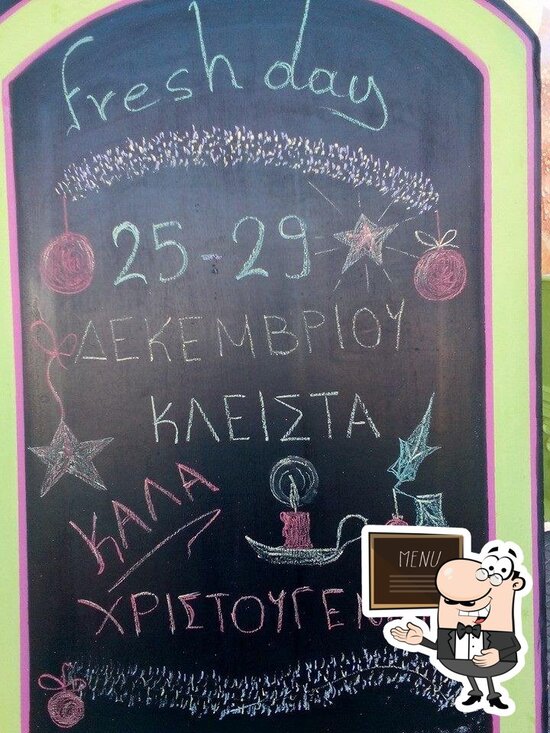 fresh day
25-29
ΔΕΚΕΜΒΡΙΟΥ
ΚΛΕΙΣΤΑ
ΚΑΛΑ
ΧΡΙΣΤΟΥΓΕΝ
MENU